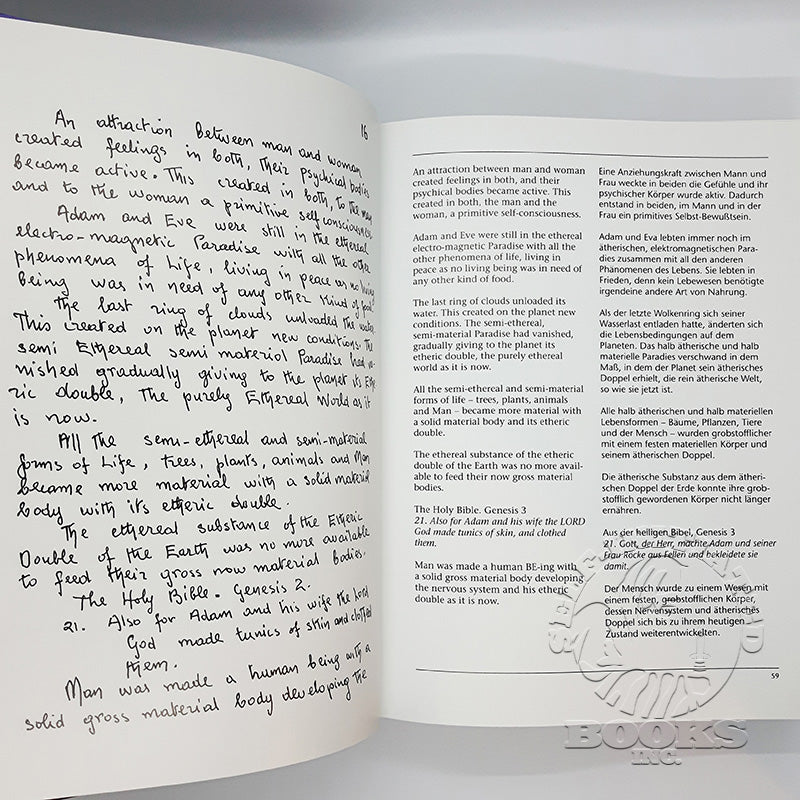 16
An attraction Between man and woman
created feelings in both, Their psychical bodies
became active. This created in both, to the man
and to the woman a primitive self consciousness.
Adam and Eve were still in the ethereal
electro-magnetic Paradise with all the other
phenomena of Life, living in peace as no living
being was in need of any other kind of food.
The last ring of clouds unloaded the water.
This created on the planet new conditions. The
semi Ethereal semi material Paradise had va-
nished gradually giving to the planet its Ethe-
ric double, The purely Ethereal World as it
is now.
All The semi-ethereal and semi-material
forms of Life, trees, plants, animals and Man
became more material with a solid material
body with its etheric double.
The ethereal substance of the Etheric
Double of the Earth was no more available
to feed their gross now material bodies.
The Holy Bible. Genesis 2.
21. Also for Adam and his wife the Lord
God made tunics of skin and clothed
them.
Man was made a human being with a
solid gross material body developing the
An attraction between man and woman
created feelings in both, and their
psychical bodies became active. This
created in both, the man and the
woman, a primitive self-consciousness.
Adam and Eve were still in the ethereal
electro-magnetic Paradise with all the
other phenomena of life, living in
peace as no living being was in need of
any other kind of food.
The last ring of clouds unloaded its
water. This created on the planet new
conditions. The semi-ethereal,
semi-material Paradise had vanished,
gradually giving to the planet its
etheric double, the purely ethereal
world as it is now.
All the semi-ethereal and semi-material
forms of life – trees, plants, animals
and Man – became more material with
a solid material body and its etheric
double.
The ethereal substance of the etheric
double of the Earth was no more avail-
able to feed their now gross material
bodies.
The Holy Bible. Genesis 3
21. Also for Adam and his wife the LORD
God made tunics of skin, and clothed
them.
Man was made a human BE-ing with
a solid gross material body developing
the nervous system and his etheric
double as it is now.
Eine Anziehungskraft zwischen Mann und
Frau weckte in beiden die Gefühle und ihr
psychischer Körper wurde aktiv. Dadurch
entstand in beiden, im Mann und in der
Frau ein primitives Selbst-Bewußtsein.
Adam und Eva lebten immer noch im
ätherischen, elektromagnetischen Para-
dies zusammen mit all den anderen
Phänomenen des Lebens. Sie lebten in
Frieden, denn kein Lebewesen benötigte
irgendeine andere Art von Nahrung.
Als der letzte Wolkenring sich seiner
Wasserlast entladen hatte, änderten sich
die Lebensbedingungen auf dem
Planeten. Das halb ätherische und halb
materielle Paradies verschwand in dem
Maß, in dem der Planet sein ätherisches
Doppel erhielt, die rein ätherische Welt,
so wie sie jetzt ist.
Alle halb ätherischen und halb materiellen
Lebensformen – Bäume, Pflanzen, Tiere
und der Mensch – wurden grobstofflicher
mit einem festen materiellen Körper und
seinem ätherischen Doppel.
Die ätherische Substanz aus dem ätheri-
schen Doppel der Erde konnte ihre grob-
stofflich gewordenen Körper nicht länger
ernähren.
Aus der heiligen Bibel, Genesis 3
21. Gott, der Herr, machte Adam und seiner
Frau Röcke aus Fellen und bekleidete sie
damit.
Der Mensch wurde zu einem Wesen mit
einem festen, grobstofflichen Körper,
dessen Nervensystem und ätherisches
Doppel sich bis zu ihrem heutigen
Zustand weiterentwickelten.
59
BOOKS
INC.